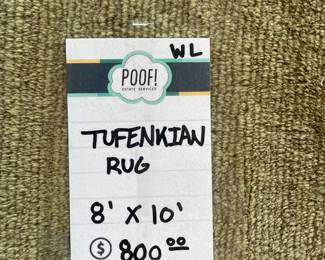 WL
POOF!
ESTATE SERVICES
TUFENKIAN
RUG
8' X 10'
$ 800 00